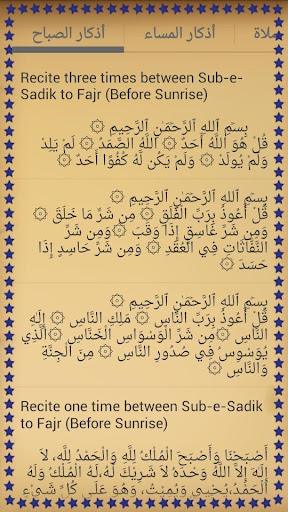 أذكار الصباح
أذكار المساء
صلاة
Recite three times between Sub-e-
Sadik to Fajr (Before Sunrise)
بِسْمِ ٱللهِ ٱلرَّحْمَٰنِ ٱلرَّحِيمِ ۞
قُلْ هُوَ اللَّهُ أَحَدٌ ۞ اللَّهُ الصَّمَدُ ۞ لَمْ يَلِدْ
وَلَمْ يُولَدْ ۞ وَلَمْ يَكُن لَّهُ كُفُوًا أَحَدٌ ۞
بِسْمِ ٱللهِ ٱلرَّحْمَٰنِ ٱلرَّحِيمِ ۞
قُلْ أَعُوذُ بِرَبِّ الْفَلَقِ ۞ مِن شَرِّ مَا خَلَقَ ۞
وَمِن شَرِّ غَاسِقٍ إِذَا وَقَبَ ۞ وَمِن شَرِّ
النَّفَّاثَاتِ فِي الْعُقَدِ ۞ وَمِن شَرِّ حَاسِدٍ إِذَا
حَسَدَ ۞
بِسْمِ ٱللهِ ٱلرَّحْمَٰنِ ٱلرَّحِيمِ ۞
قُلْ أَعُوذُ بِرَبِّ النَّاسِ ۞ مَلِكِ النَّاسِ ۞ إِلَٰهِ
النَّاسِ ۞ مِن شَرِّ الْوَسْوَاسِ الْخَنَّاسِ ۞ الَّذِي
يُوَسْوِسُ فِي صُدُورِ النَّاسِ ۞ مِنَ الْجِنَّةِ
وَالنَّاسِ ۞
Recite one time between Sub-e-Sadik
to Fajr (Before Sunrise)
أَصْبَحْنَا وَأَصْبَحَ الْمُلْكُ لِلَّهِ وَالْحَمْدُ لِلَّهِ، لاَ
إِلَهَ إِلاَّ اللَّهُ وَحْدَهُ لاَ شَرِيكَ لَهُ، لَهُ الْمُلْكُ وَلَهُ
الْحَمْدُ،يُحْيِي وَيُمِيتُ، وَهُوَ عَلَى كُلِّ شَيْءٍ